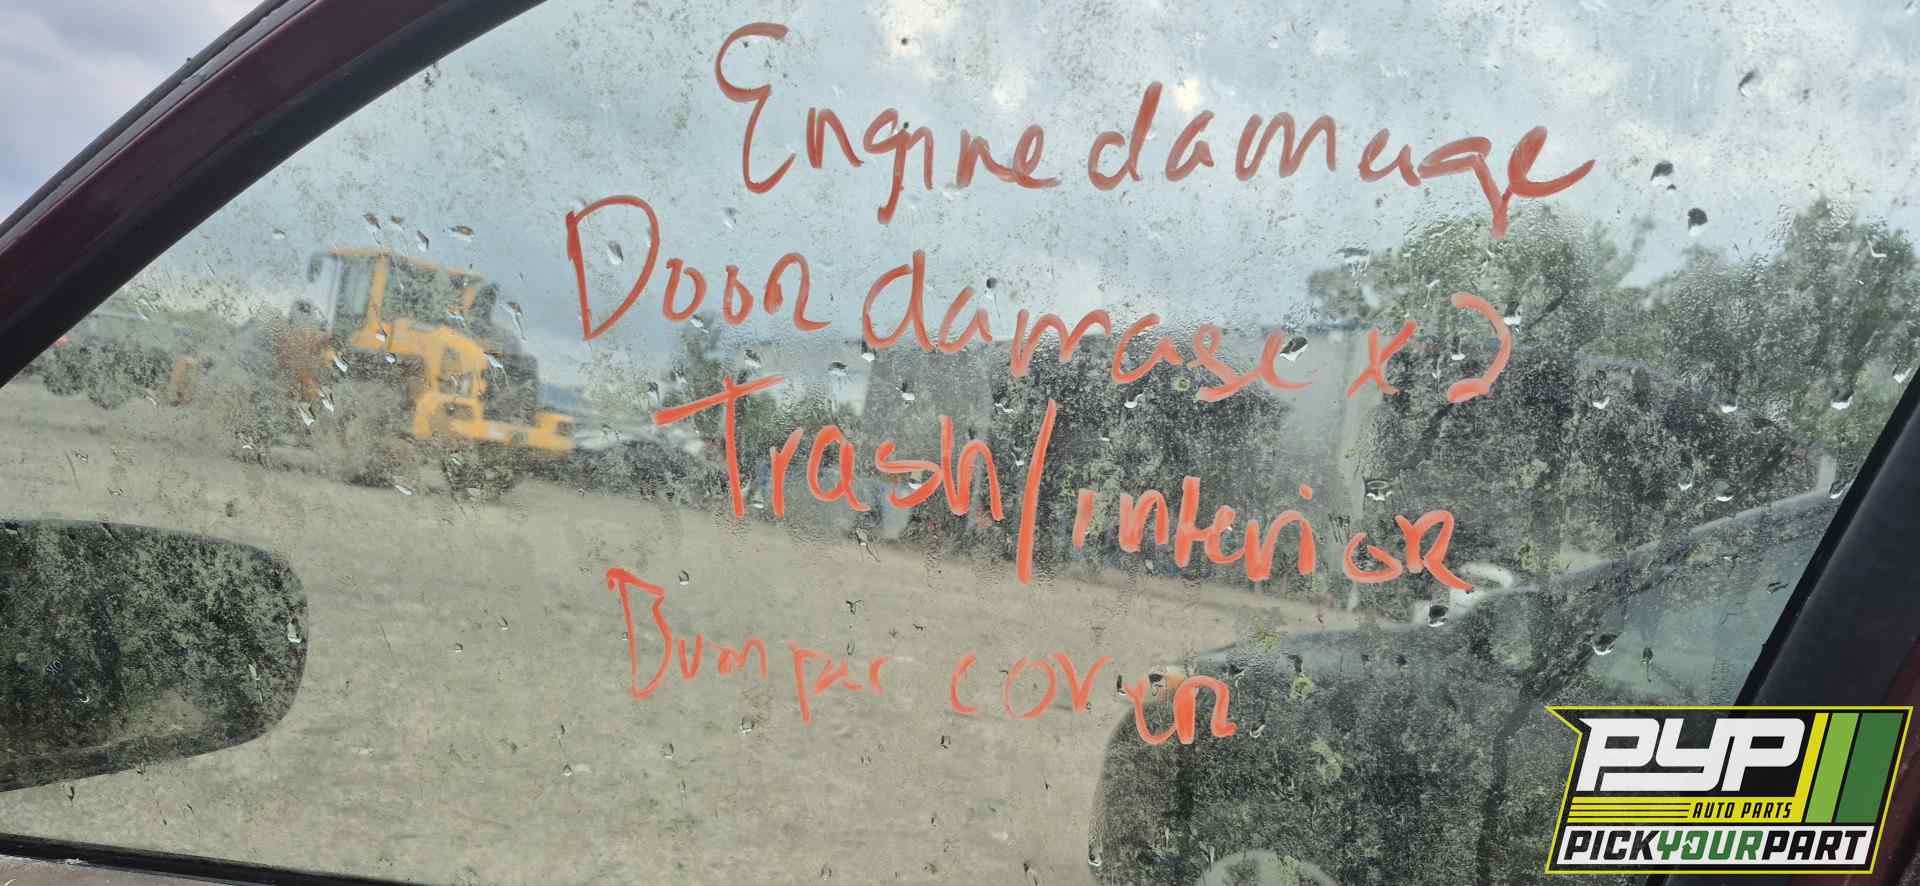 Engine damage
Door damage x2
Trash/interior
Bumper cover
PYP
AUTO PARTS
PICKYOURPART